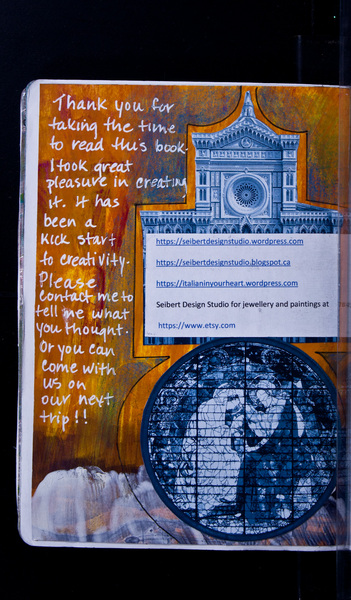 Thank you for
taking the time
to read this book.
I took great
pleasure in creating
it. It has
been a
kick start
to creativity.
Please
contact me to
tell me what
you thought.
Or you can
come with
us on
our next
trip!!
https://seibertdesignstudio.wordpress.com
https://seibertdesignstudio.blogspot.ca
https://italianinyourheart.wordpress.com
Seibert Design Studio for jewellery and paintings at
https://www.etsy.com